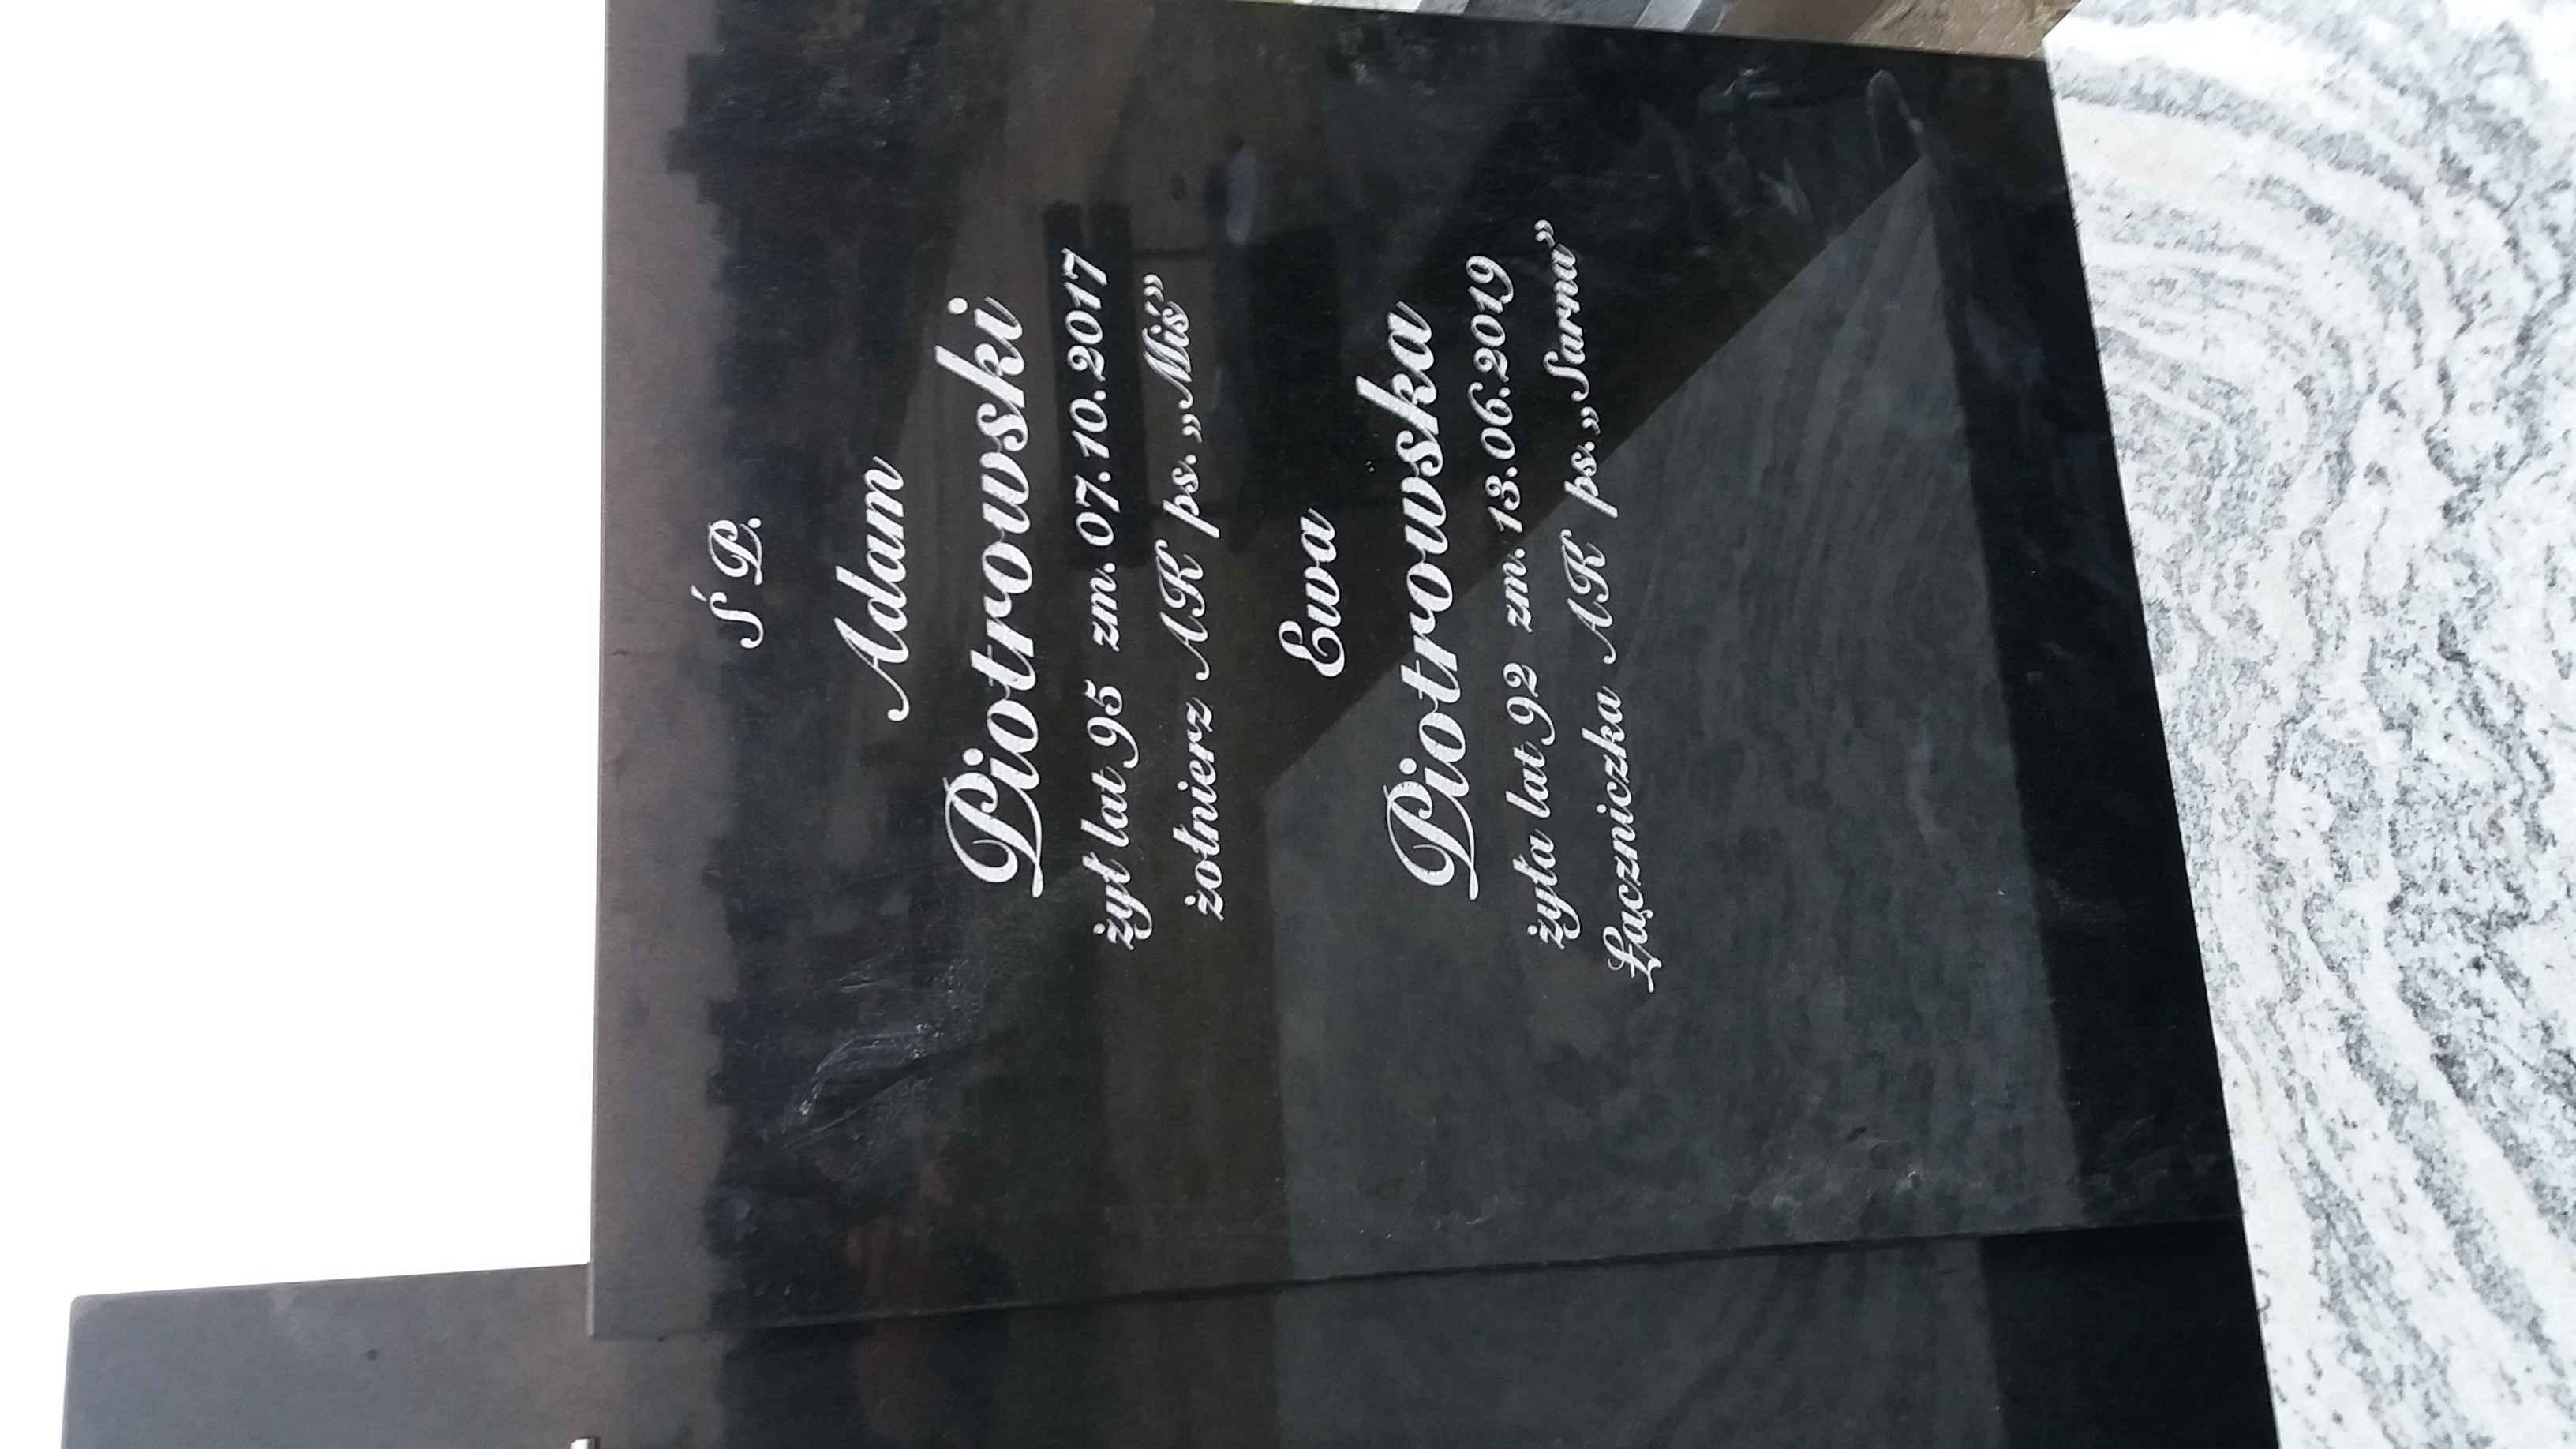 Ś P.
Adam
Piotrowski
żył lat 95 zm. 07.10.2017
żołnierz AK ps. „Miś”
Ewa
Piotrowska
żyła lat 92 zm. 13.06.2019
Łączniczka AK ps. „Sarna”